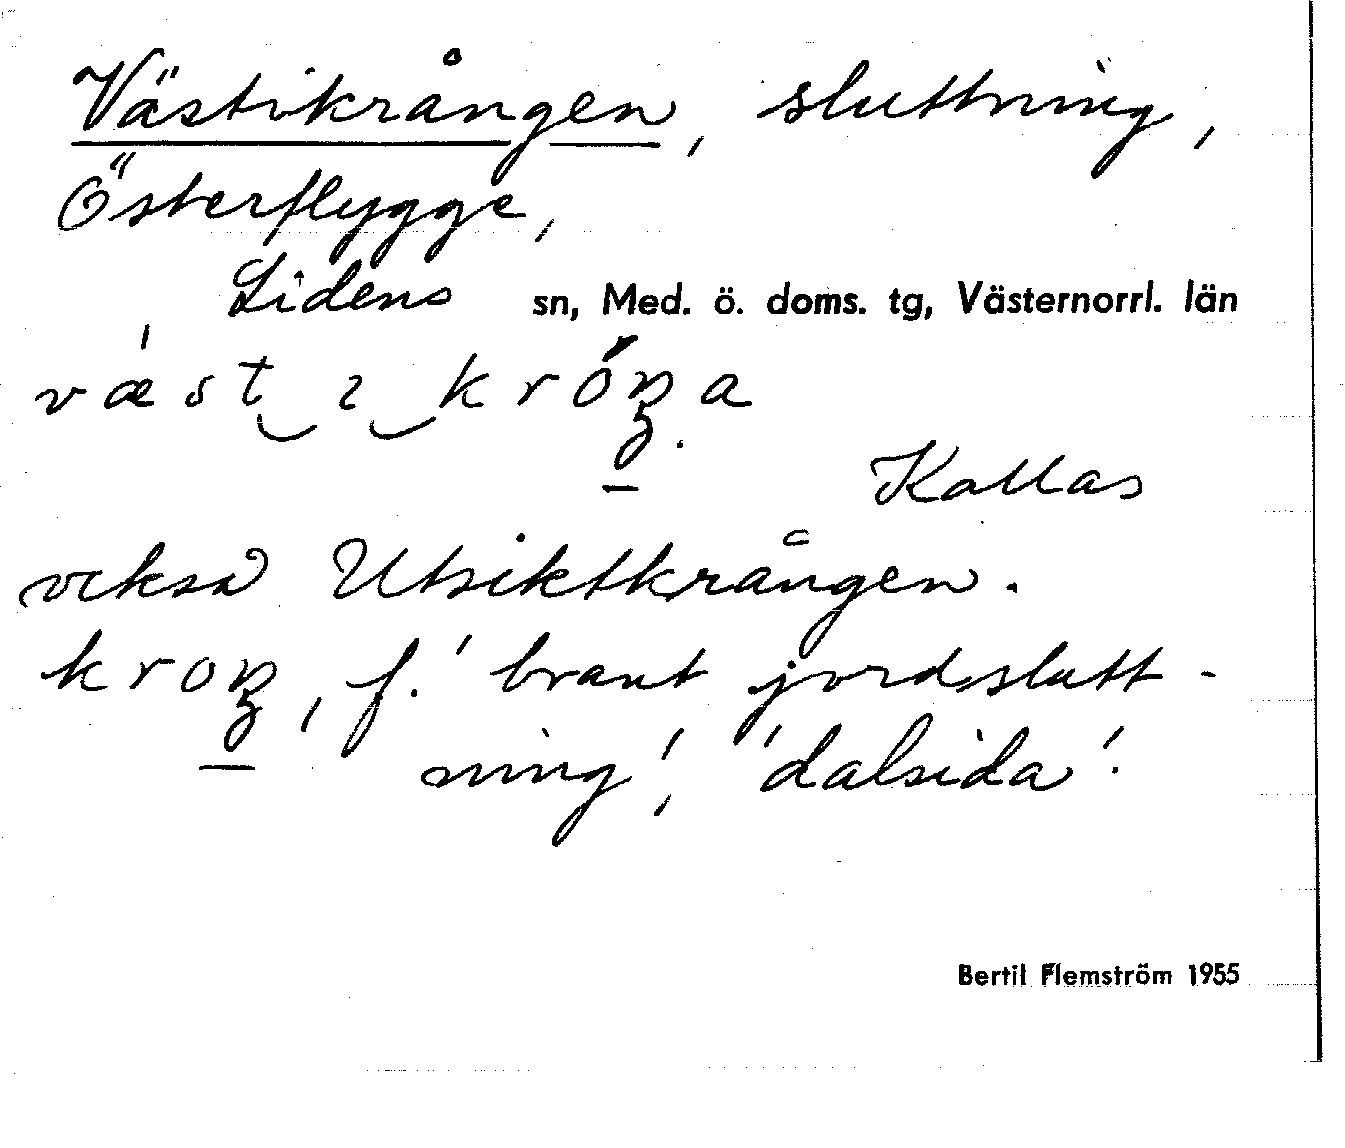 Västikrången, sluttning,
Österflygge,
Lidens sn, Med. ö. doms. tg, Västernorrl. län
væst ı króŋa
Kallas
också Utsiktkrången.
kroŋ, f. 'brant jordslutt-
ning', 'dalsida'.
Bertil Flemström 1955